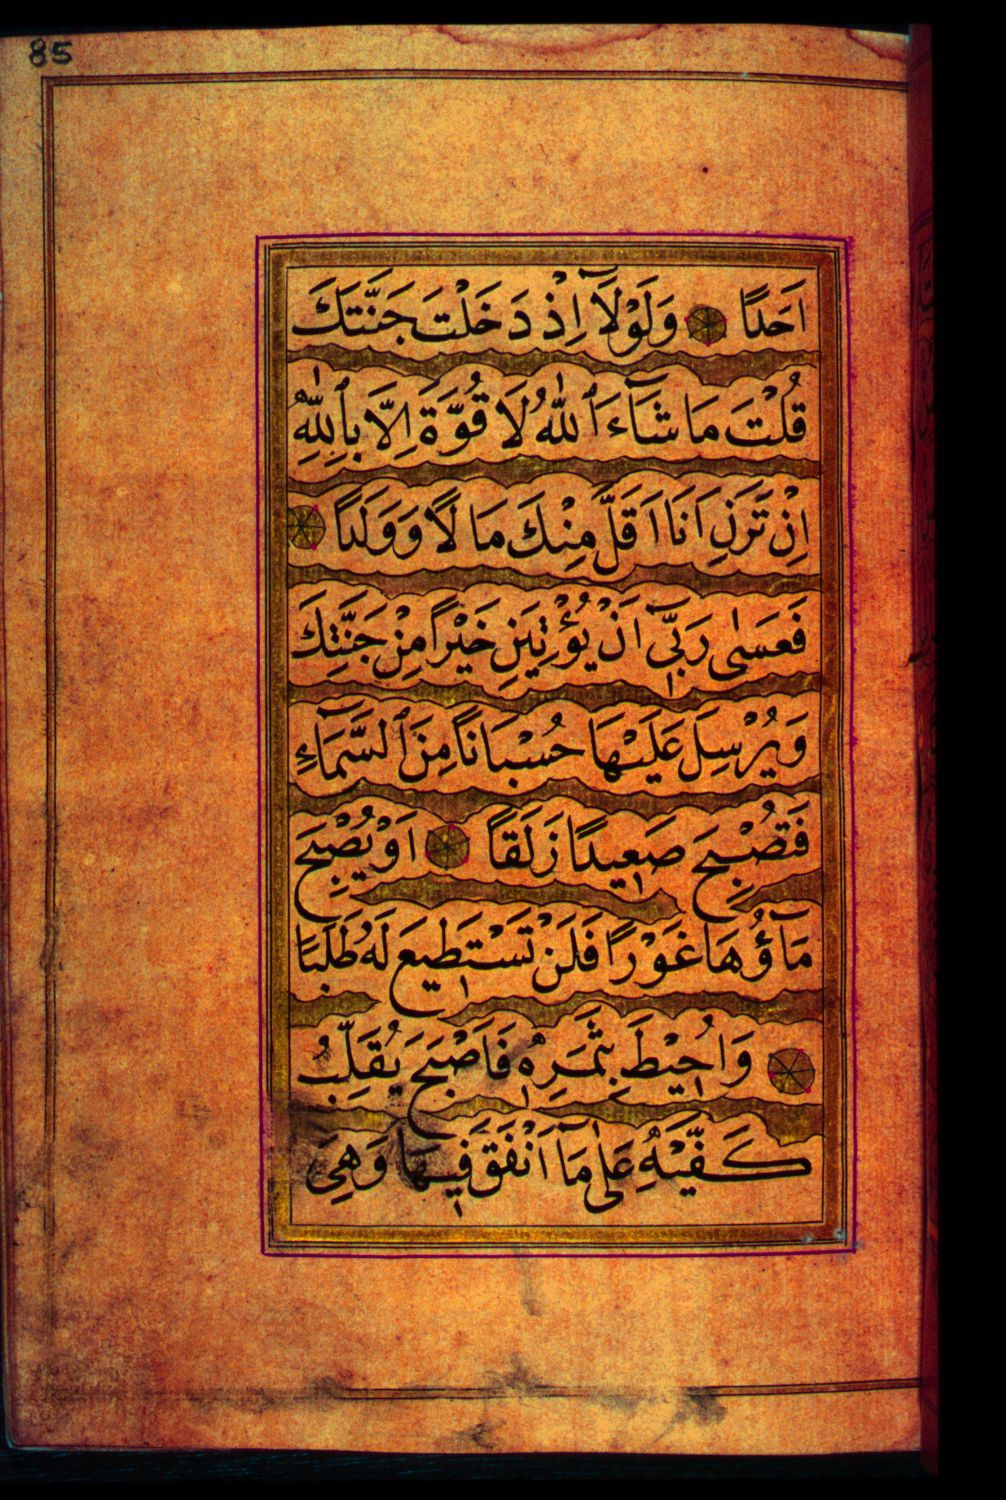 85
اَحَدًا وَلَوْلَآ اِذْ دَخَلْتَ جَنَّتَكَ
قُلْتَ مَا شَآءَ ٱللّٰهُ لَا قُوَّةَ اِلَّا بِٱللّٰهِ
اِنْ تَرَنِ اَنَا اَقَلَّ مِنْكَ مَالًا وَوَلَدًا
فَعَسٰى رَبّٓى اَنْ يُؤْتِيَنِ خَيْرًا مِنْ جَنَّتِكَ
وَيُرْسِلَ عَلَيْهَا حُسْبَانًا مِنَ ٱلسَّمَآءِ
فَتُصْبِحَ صَعِيدًا زَلَقًا اَوْ يُصْبِحَ
مَآؤُهَا غَوْرًا فَلَنْ تَسْتَطِيعَ لَهُ طَلَبًا
وَاُحِيطَ بِثَمَرِهِ فَاَصْبَحَ يُقَلِّبُ
كَفَّيْهِ عَلٰى مَآ اَنْفَقَ فِيهَا وَهِىَ